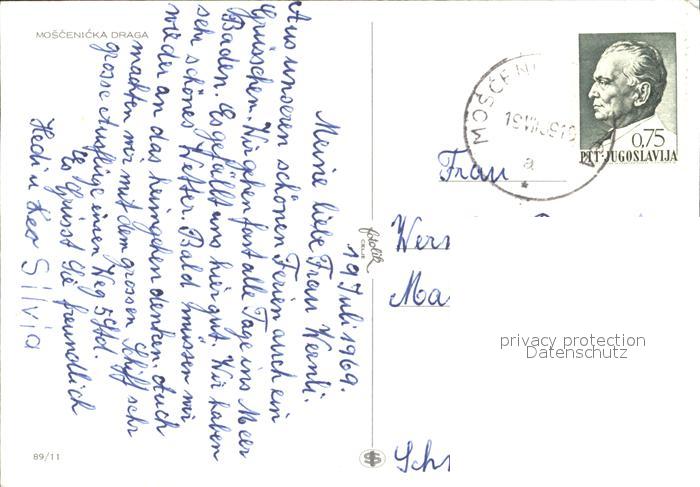 MOŠĆENIČKA DRAGA
19 Juli 1969.
Meine liebe Frau Wernli.
Aus unseren schönen Ferien auch ein
Grüsschen. Wir gehen fast alle Tage ins Meer
Baden. Es gefällt uns hier gut. Wir haben
sehr schönes Wetter. Bald müssen wir
wieder an das heimgehen denken. Auch
machten wir mit dem grossen Schiff sehr
grosse Ausflüge einen Weg 5 Std.
Es Grüsst Sie freundlich
Hedi u Leo Silvia
89/11
fotolik
CELJE
MOŠĆENI
a
0,75
PTT-JUGOSLAVIJA
Frau
Wern
Ma
Sch
privacy protection
Datenschutz